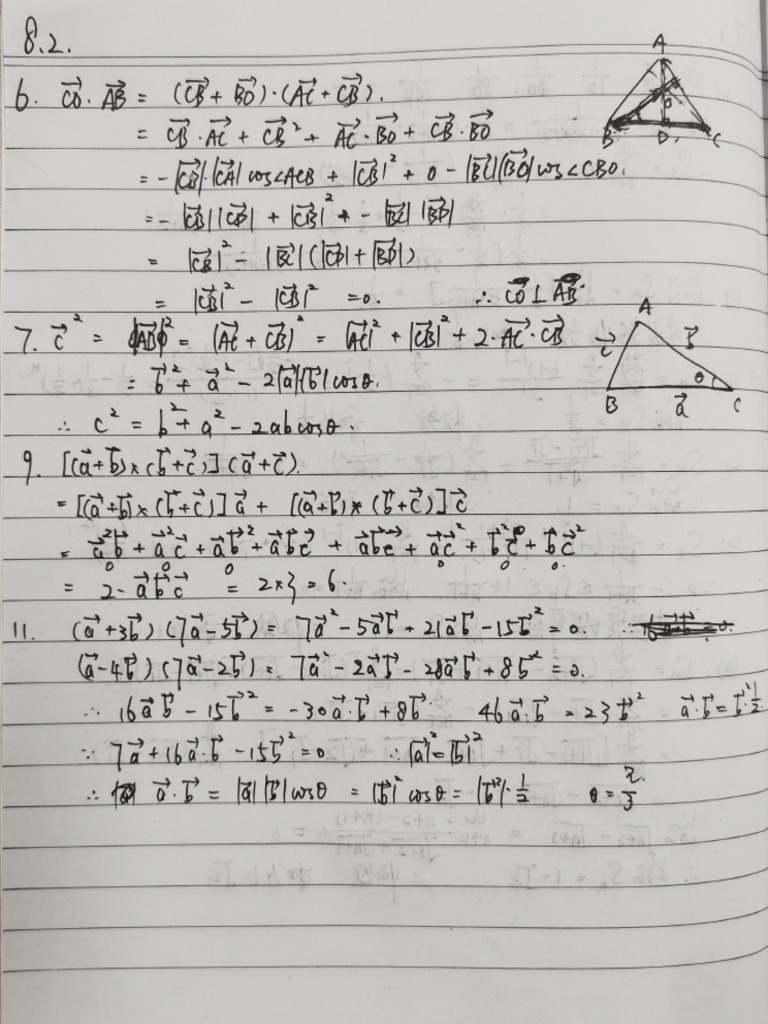 8.2.
6. $\vec{CO}\cdot\vec{AB} = (\vec{CB}+\vec{BO})\cdot(\vec{AC}+\vec{CB}).$
$= \vec{CB}\cdot\vec{AC}+\vec{CB}^2+\vec{AC}\cdot\vec{BO}+\vec{CB}\cdot\vec{BO}$
$= -|\vec{CB}|\cdot|\vec{CA}|\cos<ACB+|\vec{CB}|^2+0-|\vec{BC}||\vec{BO}|\cos<CBO.$
$= -|\vec{CB}||\vec{CD}|+|\vec{CB}|^2+-|\vec{BC}||\vec{BD}|$
$= |\vec{CB}|^2-|\vec{BC}|(|\vec{CD}|+|\vec{BD}|)$
$= |\vec{CB}|^2-|\vec{CB}|^2=0. \quad \therefore \vec{CO}\perp\vec{AB}.$
A
B D C
O
7. $\vec{c}^2=|\vec{AB}|^2=(\vec{AC}+\vec{CB})^2=|\vec{AC}|^2+|\vec{CB}|^2+2\cdot\vec{AC}\cdot\vec{CB}$
$= \vec{b}^2+\vec{a}^2-2|\vec{a}||\vec{b}|\cos\theta.$
$\therefore c^2=b^2+a^2-2ab\cos\theta.$
A
$\vec{c}$ $\vec{b}$
θ
B $\vec{a}$ C
9. $[(\vec{a}+\vec{b})\times(\vec{b}+\vec{c})](\vec{a}+\vec{c}).$
$= [(\vec{a}+\vec{b})\times(\vec{b}+\vec{c})]\vec{a}+[(\vec{a}+\vec{b})\times(\vec{b}+\vec{c})]\vec{c}$
$= \vec{a}^2\vec{b}+\vec{a}^2\vec{c}+\vec{a}\vec{b}^2+\vec{a}\vec{b}\vec{c}+\vec{a}\vec{b}\vec{c}+\vec{a}\vec{c}^2+\vec{b}^2\vec{c}+\vec{b}\vec{c}^2$
0 0 0 0 0 0
$= 2\cdot\vec{a}\vec{b}\vec{c}=2\times3=6.$
11. $(\vec{a}+3\vec{b})(7\vec{a}-5\vec{b})=7\vec{a}^2-5\vec{a}\vec{b}+21\vec{a}\vec{b}-15\vec{b}^2=0.$
$(\vec{a}-4\vec{b})(7\vec{a}-2\vec{b})=7\vec{a}^2-2\vec{a}\vec{b}-28\vec{a}\vec{b}+8\vec{b}^2=0.$
$\therefore 16\vec{a}\vec{b}-15\vec{b}^2=-30\vec{a}\cdot\vec{b}+8\vec{b} \quad 46\vec{a}\cdot\vec{b}=23\vec{b}^2 \quad \vec{a}\cdot\vec{b}=\vec{b}^2\cdot\frac{1}{2}$
$\because 7\vec{a}+16\vec{a}\cdot\vec{b}-15\vec{b}^2=0 \quad \therefore |\vec{a}|^2=|\vec{b}|^2$
$\therefore \vec{a}\cdot\vec{b}=|\vec{a}||\vec{b}|\cos\theta=|\vec{b}|^2\cos\theta=|\vec{b}^2|\cdot\frac{1}{2} \quad \theta=\frac{\pi}{3}$